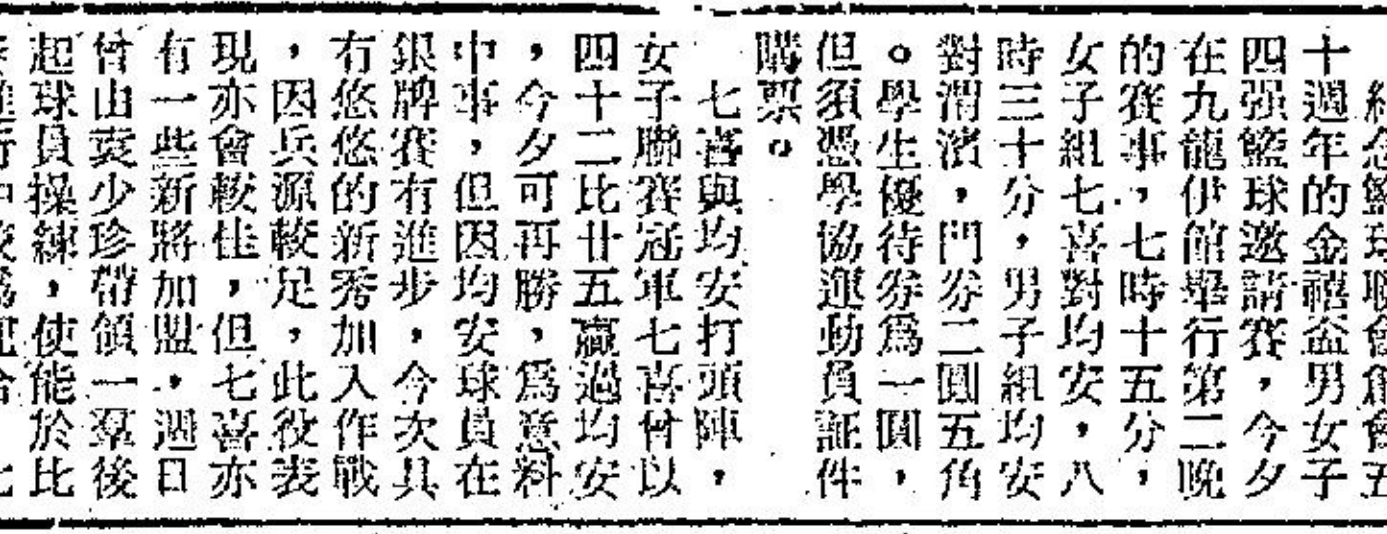 紀念籃球聯會創會五
十週年的金禧盃男女子
四强籃球邀請賽，今夕
在九龍伊館舉行第二晚
的賽事，七時十五分，
女子組七喜對均安，八
時三十分，男子組均安
對渭濱，門券二圓五角
。學生優待券爲一圓，
但須憑學協運動員証件
購票。
七喜與均安打頭陣，
女子聯賽冠軍七喜曾以
四十二比廿五贏過均安
，今夕可再勝，爲意料
中事，但因均安球員在
銀牌賽有進步，今次具
有悠悠的新秀加入作戰
，因兵源較足，此役表
現亦會較佳，但七喜亦
有一些新將加盟，週日
曾由袁少珍帶領一羣後
起球員操練，使能於比